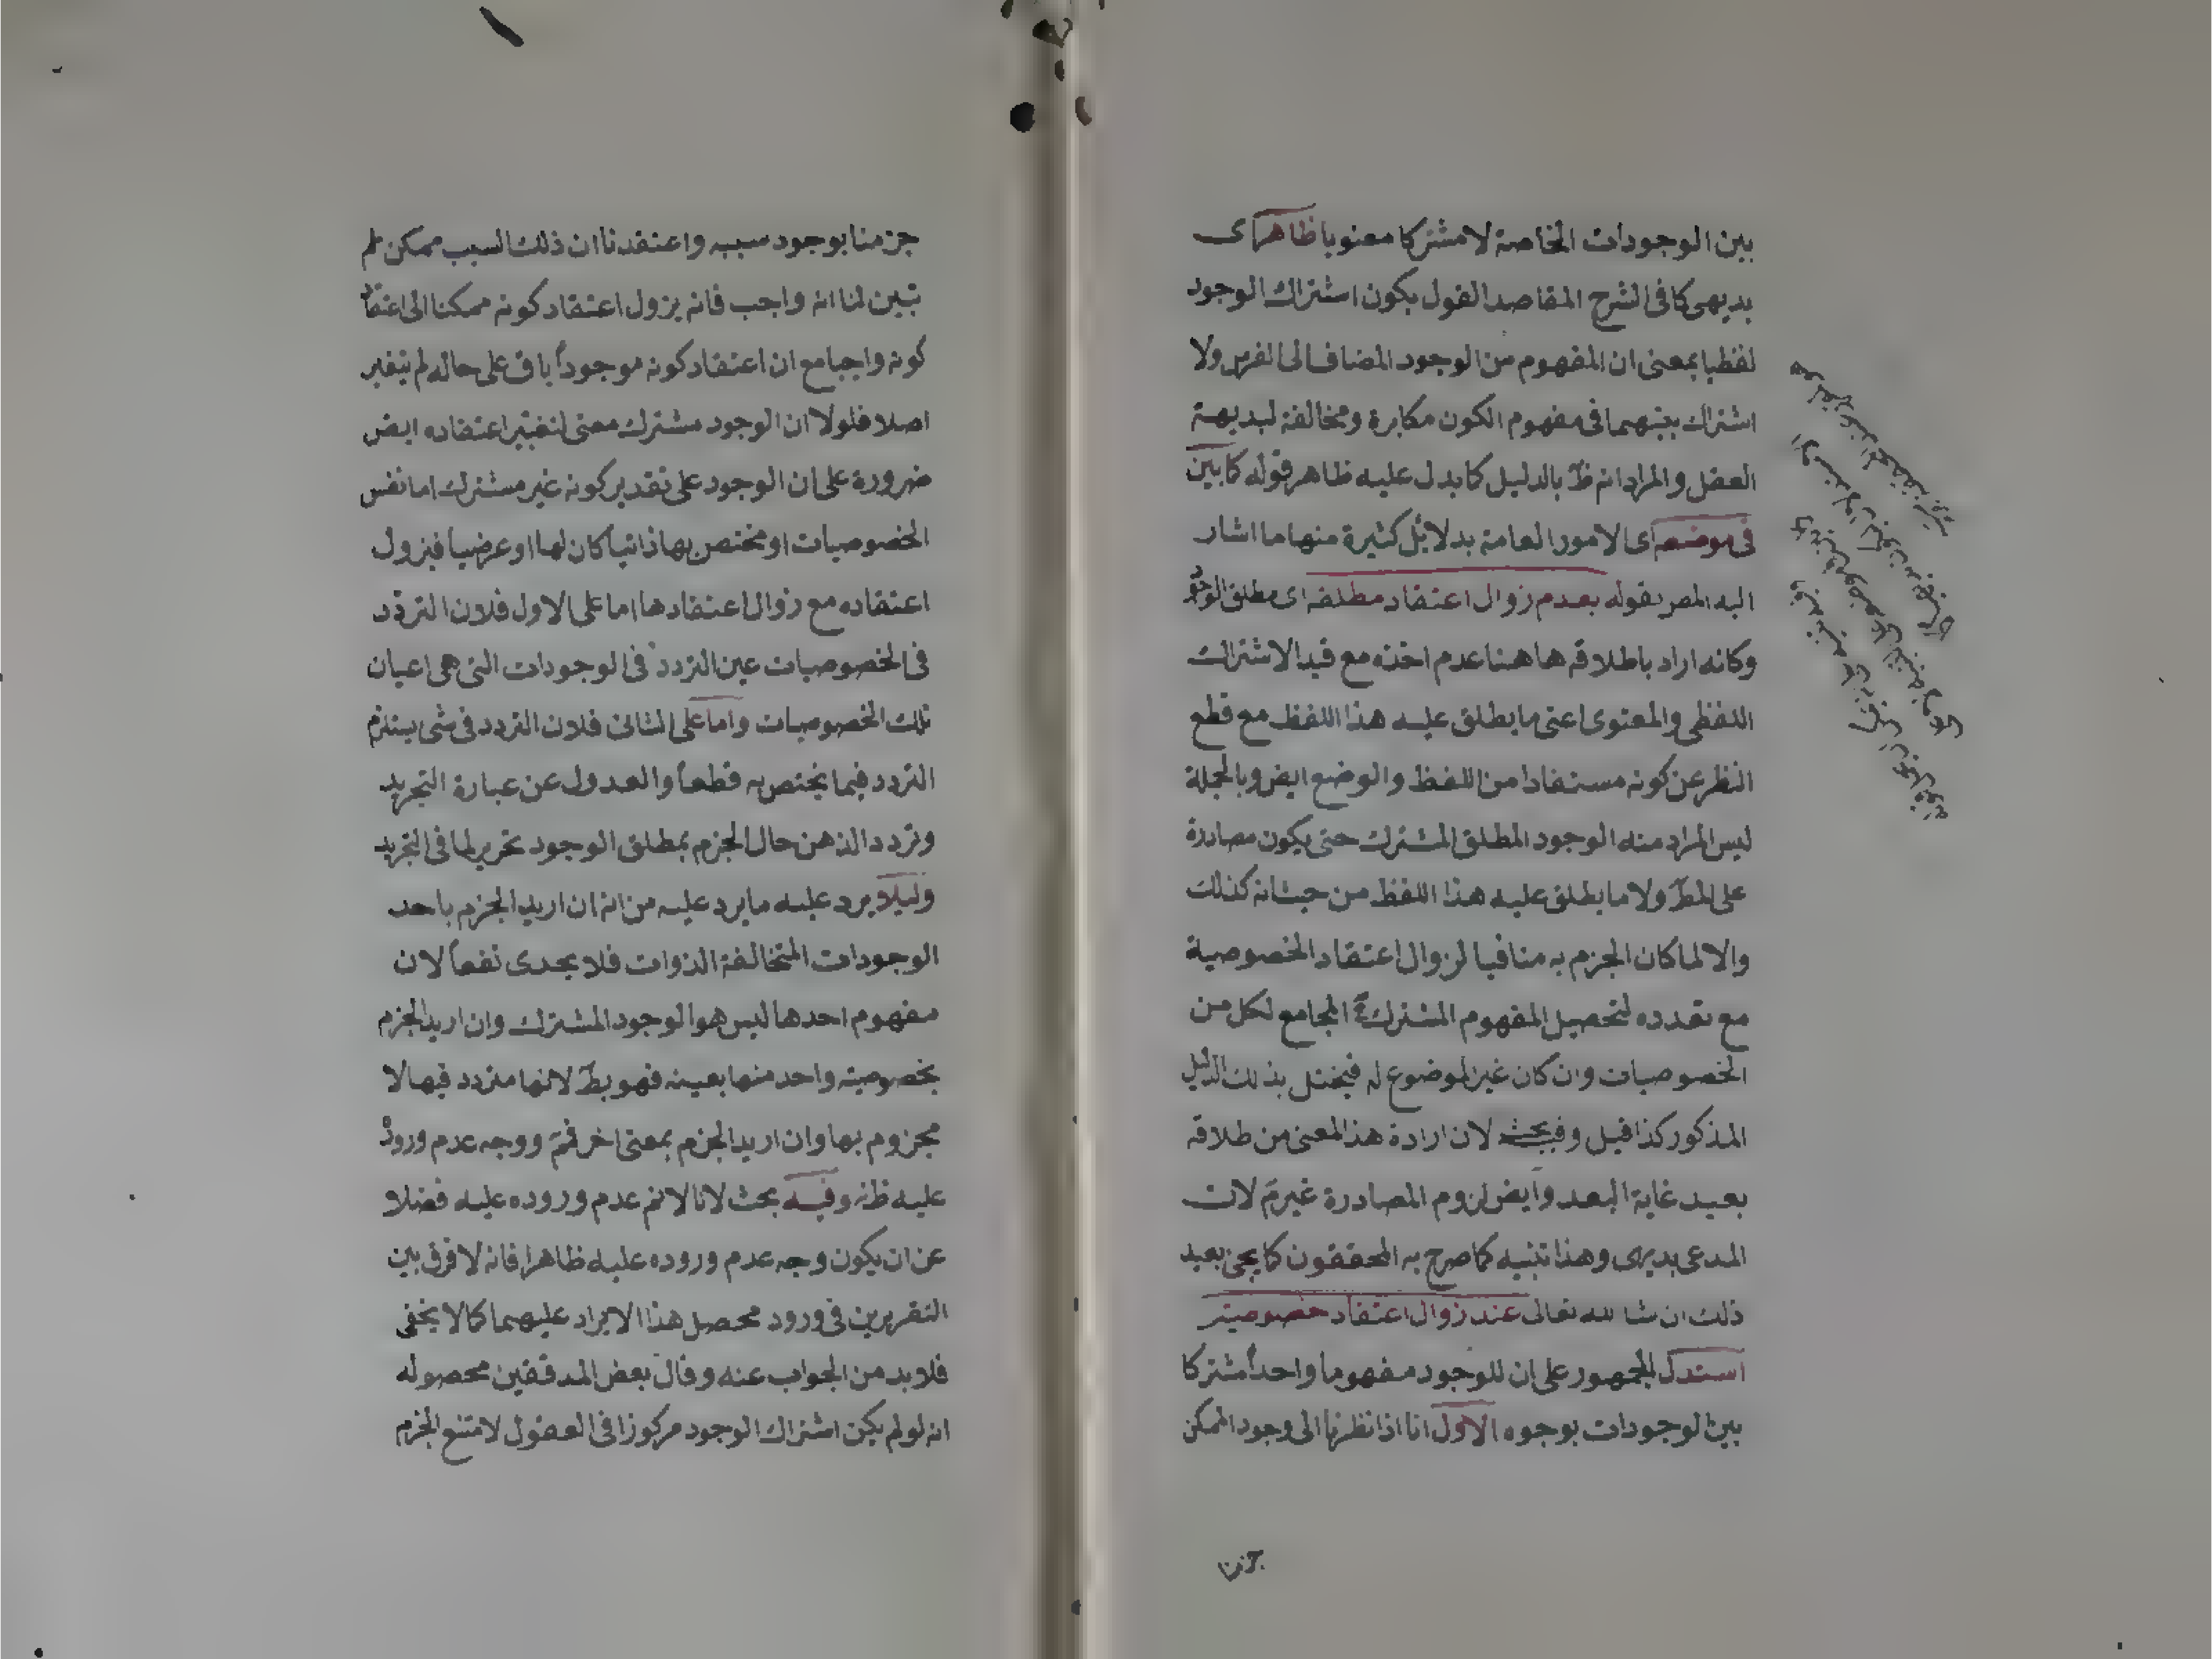 بين الوجودات الخاصة لا مشتركا معنويا ظاهر اى
بديهى كما فى الشرح المقاصد القول بكون اشتراك الوجود
لفظيا بمعنى ان المفهوم من الوجود المضاف الى الفرس ولا
اشتراك بينهما فى مفهوم الكون مكابرة ومخالفة لبديهة
العقل والمراد انه ظ بالدليل كما يدل عليه ظاهر قوله كما بين
فى موضعه اى الامور العامة بدلائل كثيرة منها ما اشار
اليه المص بقوله بعدم زوال اعتقاد مطلقه اى مطلق الوجود
وكانه اراد باطلاقه ها ههنا عدم اخذه مع قيد الاشتراك
اللفظى والمعنوى اعنى ما يطلق عليه هذا اللفظ مع قطع
النظر عن كونه مستفادا من اللفظ والوضع ايض وبالجملة
ليس المراد منه الوجود المطلق المشترك حتى يكون مصادرة
على المط ولا ما يطلق عليه هذا اللفظ من حيث انه كذلك
والا لما كان الجزم به منافيا لزوال اعتقاد الخصوصية
مع تعدده لتحصيل المفهوم المشترك الجامع لكل من
الخصوصيات وان كان غير الموضوع له فيختل بذلك الدليل
المذكور كذا قيل وفيه بحث لان ارادة هذا المعنى من طلاقه
بعيد غاية البعد وايض لزوم المصادرة غير م لان
المدعى بديهى وهذا تنبيه كما صرح به المحققون كما يجئ بعيد
ذلك ان شا لله تعالى عند زوال اعتقاد خصوصيته
استدل الجمهور على ان للوجود مفهوما واحدا مشتركا
بين الوجودات بوجوه الاول انا اذا نظرنا الى وجود الممكن
جزمنا
جزمنا بوجود سببه واعتقدنا ان ذلك السبب ممكن ثم
تبين لنا انه واجب فانه يزول اعتقاد كونه ممكنا الى اعتقاد
كونه واجبا مع ان اعتقاد كونه موجودا باق على حاله لم يتغير
اصلا فلولا ان الوجود مشترك معنى لتغير اعتقاده ايض
ضرورة على ان الوجود على تقدير كونه غير مشترك اما نفس
الخصوصيات او مختص بها ذاتيا كان لها او عرضيا فيزول
اعتقاده مع زوال اعتقادها اما على الاول فلان التردد
فى الخصوصيات عين التردد فى الوجودات التى هى اعيان
تلك الخصوصيات واما على الثانى فلان التردد فى شى يستلزم
التردد فيما يختص به قطعا والعدول عن عبارة التجريد
وتردد الذهن حال الجزم بمطلق الوجود تحرير لما فى التجريد
وليلا يرد عليه ما يرد عليه من انه ان اريد الجزم باحد
الوجودات المتخالفة الذوات فلا يجدى نفعا لان
مفهوم احدها ليس هو الوجود المشترك وان اريد الجزم
بخصوصية واحد منها بعينه فهو بط لانها متردد فيها لا
مجزوم بها وان اريد الجزم بمعنى اخر فثم ووجه عدم وروده
عليه ظ وفيه بحث لانا لا نم عدم وروده عليه فضلا
عن ان يكون وجه عدم وروده عليه ظاهرا فانه لا فرق بين
التقريرين فى ورود محصل هذا الايراد عليهما كما لا يخفى
فلا بد من الجواب عنه وقال بعض المدققين محصوله
انه لو لم يكن اشتراك الوجود مركوزا فى العقول لامتنع الجزم